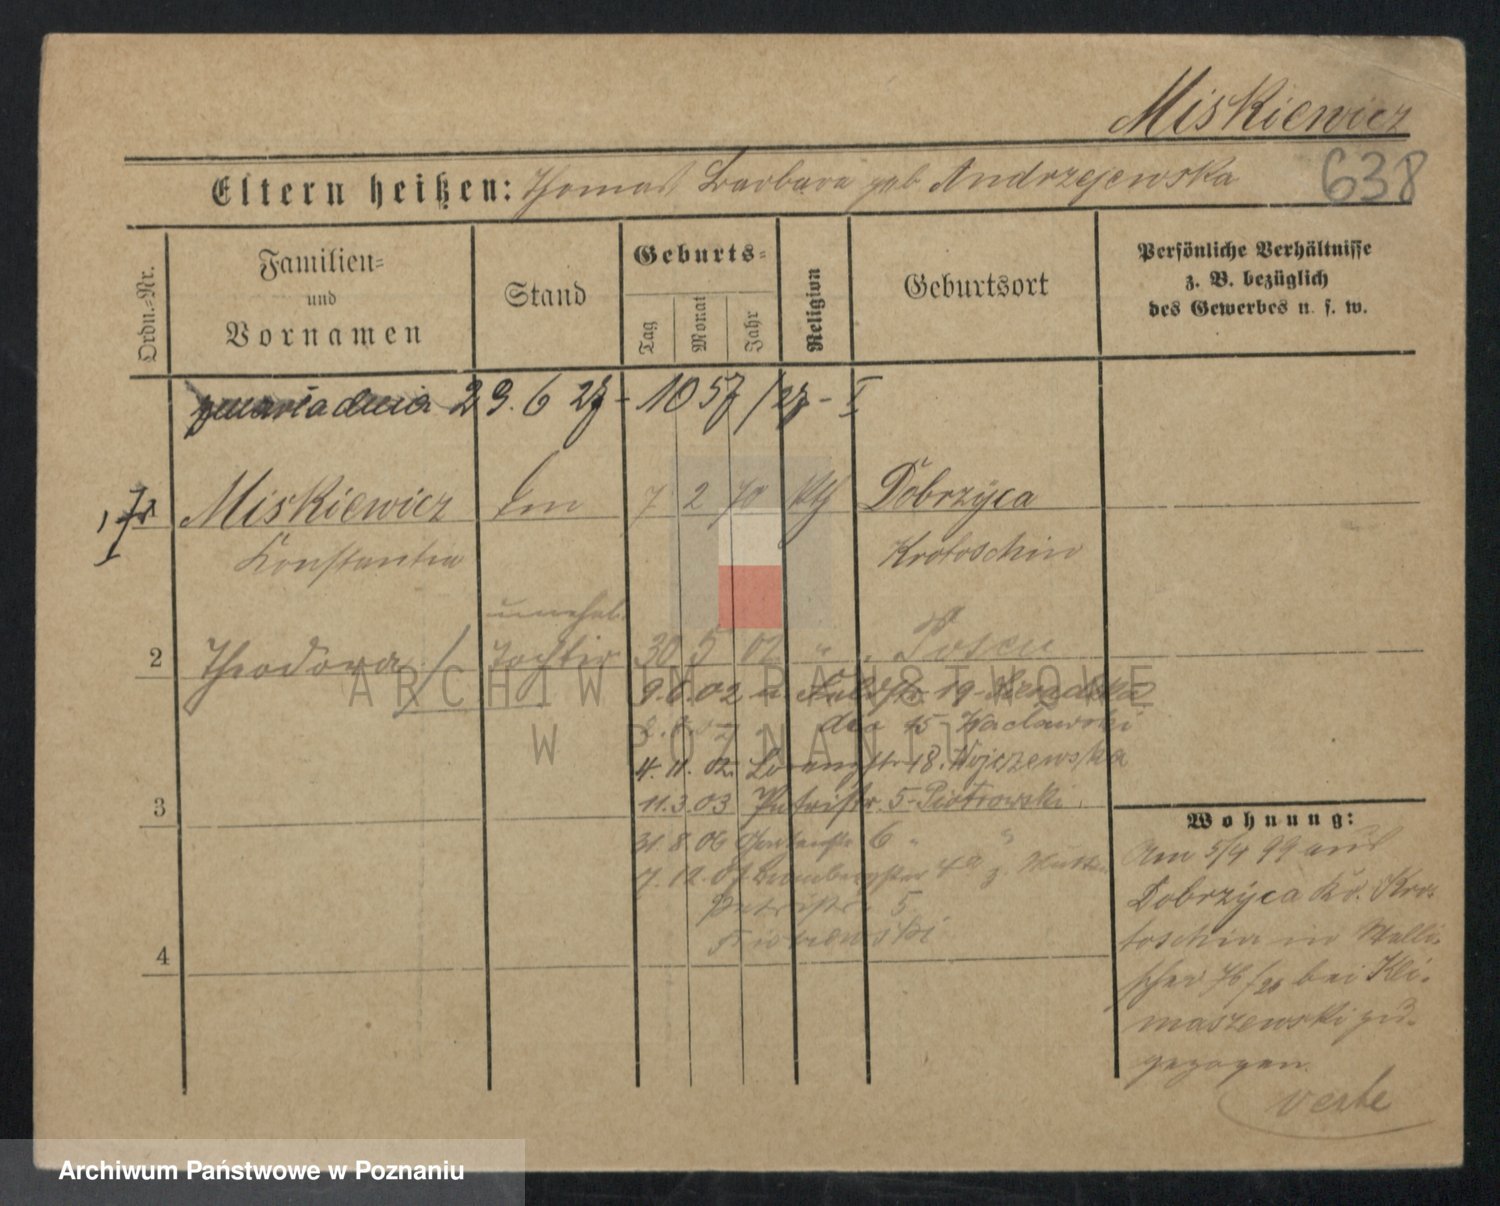 Miskiewicz
638
Eltern heißen: Thomas Barbara geb Andrzejewska
Ordn.-Nr.
Familien- und Vornamen
Stand
Geburts-
Tag Monat Jahr
Religion
Geburtsort
Persönliche Verhältnisse
z. B. bezüglich
des Gewerbes u. s. w.
zmarła dnia 29. 6 27 - 1057/27 - I
Miskiewicz 7 2 70 kth Dobrzyca
Konstantia Krotoschin
unehel.
2 Theodora Tochter 30 5 02 " " Posen
9.6.02 19
15 Wacławski
4. 11. 02 18. Wojczewska
3 11.3.03 Petristr. 5 Piotrowski
31. 8 06 6 "
7. 12. 07 4a z. Mutter
Petristr. 5
Piotrowski
4
Wohnung:
Am 5/4 99 aus
Dobrzyca Kr. Kro-
toschin in Walli-
schei 76/26 bei Kli-
maszewski zu-
gezogen.
ARCHIWUM PAŃSTWOWE
W POZNANIU
Archiwum Państwowe w Poznaniu